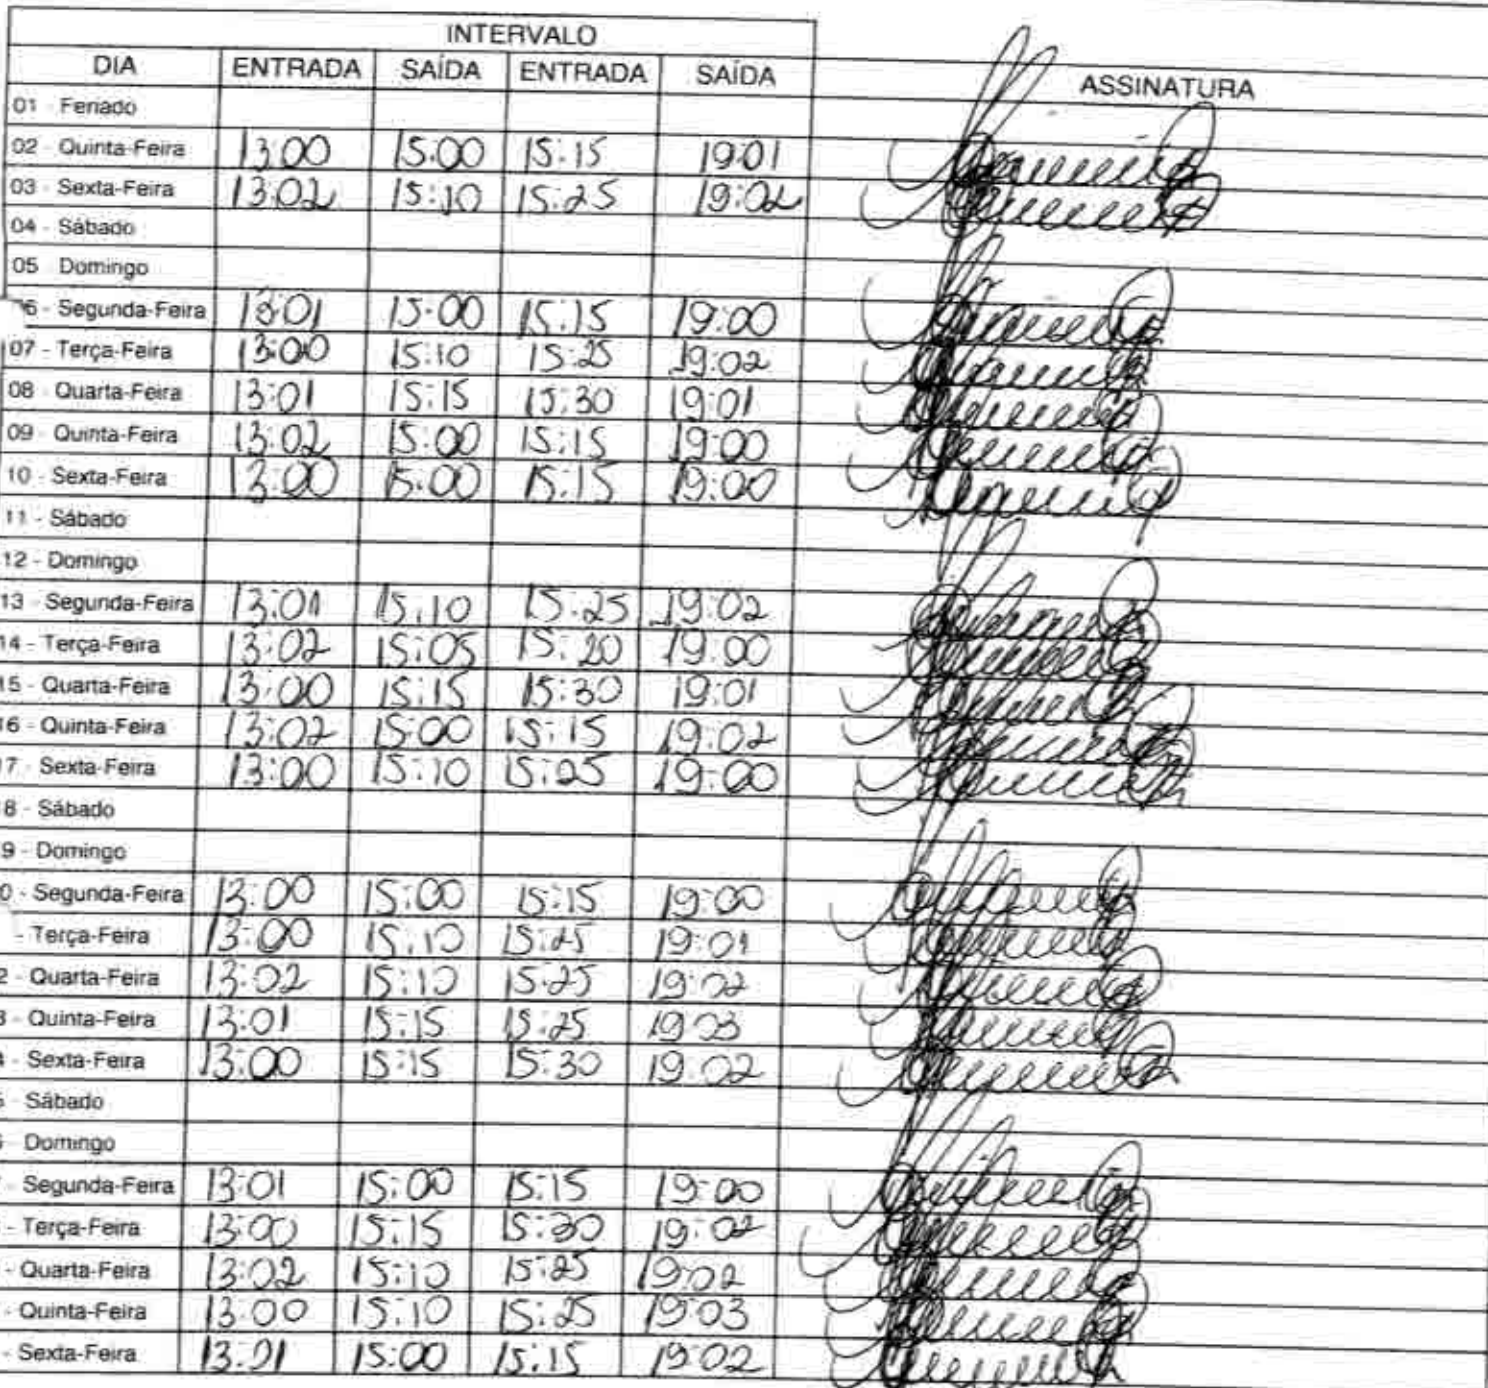 INTERVALO
DIA ENTRADA SAÍDA ENTRADA SAÍDA ASSINATURA
01 Feriado
02 - Quinta-Feira 13:00 15:00 15:15 19:01
03 - Sexta-Feira 13:02 15:10 15:25 19:02
04 - Sábado
05 Domingo
6 - Segunda-Feira 13:01 15:00 15:15 19:00
07 - Terça-Feira 13:00 15:10 15:25 19:02
08 - Quarta-Feira 13:01 15:15 15:30 19:01
09 - Quinta-Feira 13:02 15:00 15:15 19:00
10 - Sexta-Feira 13:00 15:00 15:15 19:00
11 - Sábado
12 - Domingo
13 - Segunda-Feira 13:01 15:10 15:25 19:02
14 - Terça-Feira 13:02 15:05 15:20 19:00
15 - Quarta-Feira 13:00 15:15 15:30 19:01
16 - Quinta-Feira 13:02 15:00 15:15 19:02
7 - Sexta-Feira 13:00 15:10 15:25 19:00
8 - Sábado
9 - Domingo
0 - Segunda-Feira 13:00 15:00 15:15 19:00
- Terça-Feira 13:00 15:10 15:25 19:01
2 - Quarta-Feira 13:02 15:10 15:25 19:02
3 - Quinta-Feira 13:01 15:15 15:25 19:03
4 - Sexta-Feira 13:00 15:15 15:30 19:02
Sábado
Domingo
- Segunda-Feira 13:01 15:00 15:15 19:00
- Terça-Feira 13:00 15:15 15:30 19:02
- Quarta-Feira 13:02 15:10 15:25 19:02
- Quinta-Feira 13:00 15:10 15:25 19:03
- Sexta-Feira 13:01 15:00 15:15 19:02